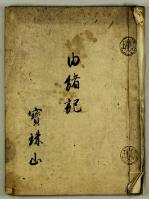 由緒記
寳珠山